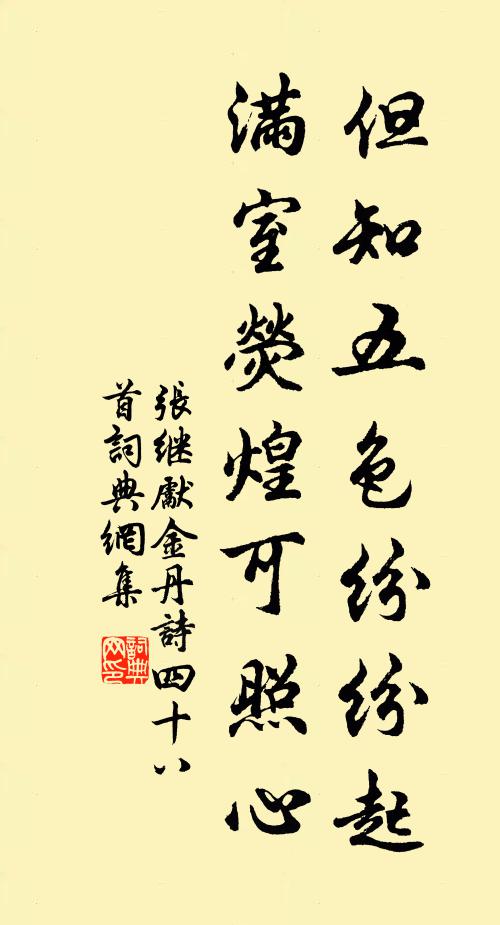 但知五色紛紛起
滿室熒煌可照心
張继獻金丹詩四十八
首詞典網集
詞典
网印